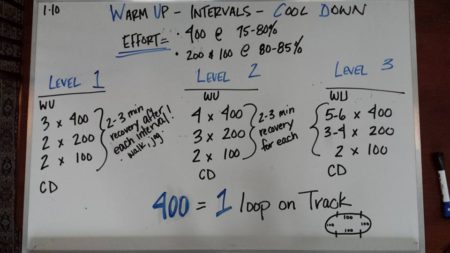 1-10
WARM UP - INTERVALS - COOL DOWN
EFFORT = • 400 @ 75-80%
• 200 & 100 @ 80-85%
LEVEL 1
WU
3 x 400
2 x 200
2 x 100
CD
2-3 min
recovery after
each interval!
walk, jog
LEVEL 2
WU
4 x 400
3 x 200
2 x 100
CD
2-3 min
recovery
for each
LEVEL 3
WU
5-6 x 400
3-4 x 200
2 x 100
CD
400 = 1 loop on Track
100
100
100
100